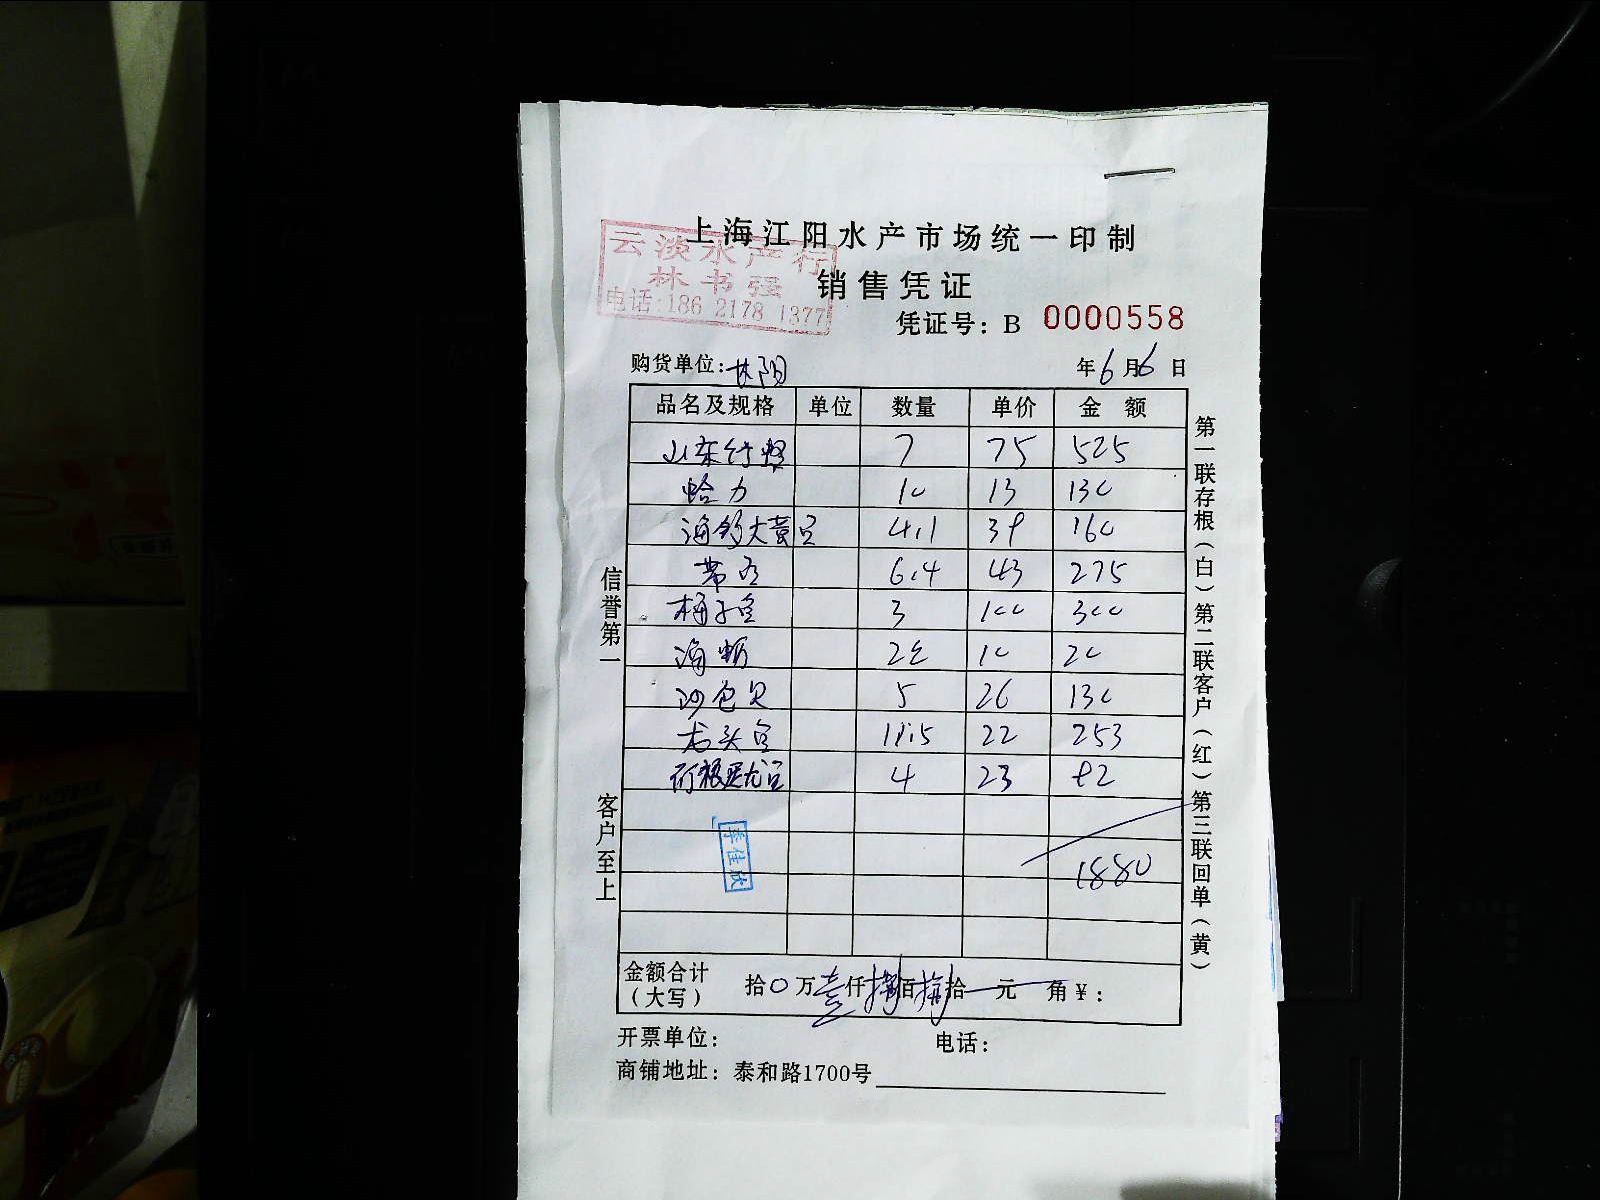 上海江阳水产市场统一印制
云淡水产行
林书强
电话:186 2178 1377
销售凭证
凭证号：B 0000558
购货单位: 阳 年6月6日
品名及规格 单位 数量 单价 金额
山东 7 75 525
蛤力 10 13 130
海钓大黄鱼 4.1 39 160
带鱼 6.4 43 275
梅子鱼 3 100 300
海蛎 10 20
沙包贝 5 26 130
龙头鱼 11.5 22 253
4 23 92
李佳欣
1880
金额合计（大写） 拾0万壹仟捌佰捌拾一元一角￥：
开票单位： 电话：
商铺地址：泰和路1700号
信誉第一
客户至上
第一联存根（白）第二联客户（红）第三联回单（黄）